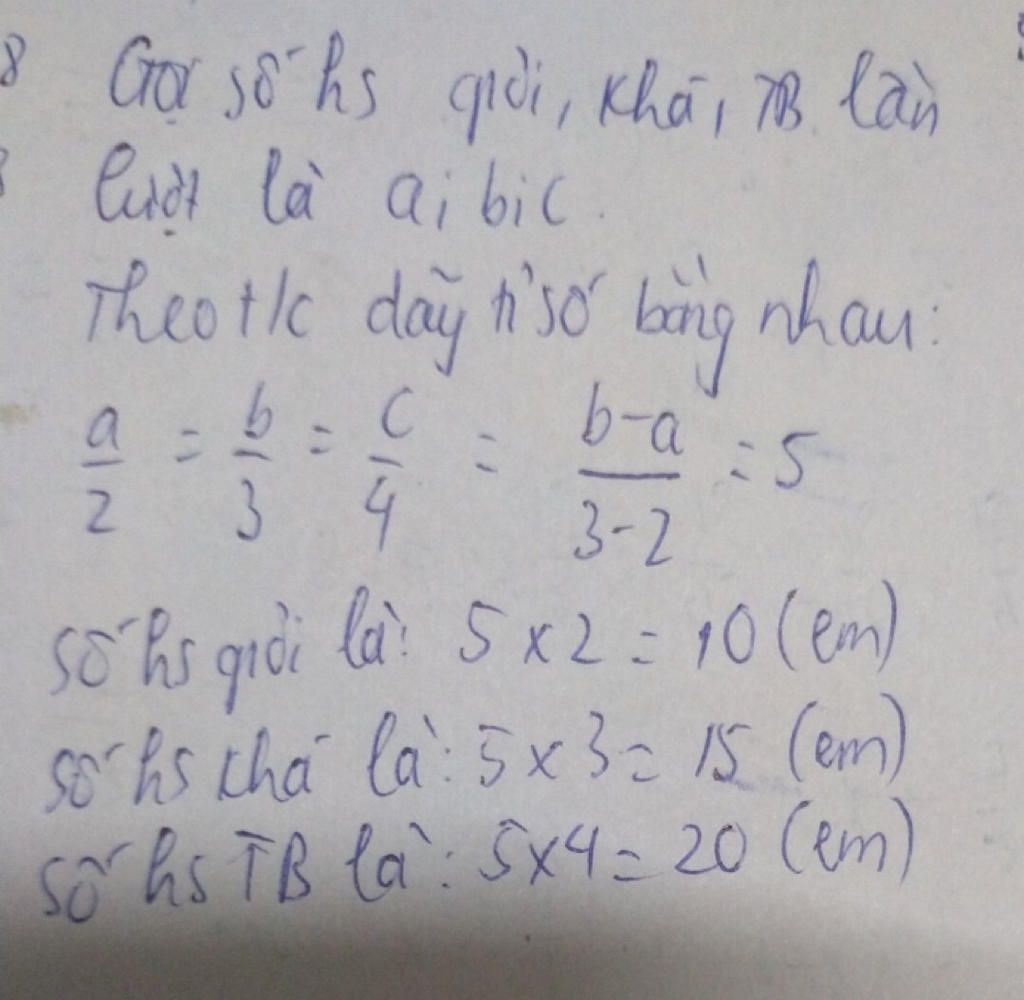 8 Gọi số hs giỏi, khá, TB lần
lượt là a; b; c.
Theo t/c dãy tỉ số bằng nhau:
a/2 = b/3 = c/4 = b-a/3-2 = 5
Số hs giỏi là: 5 x 2 = 10 (em)
Số hs khá là: 5 x 3 = 15 (em)
Số hs TB là: 5 x 4 = 20 (em)